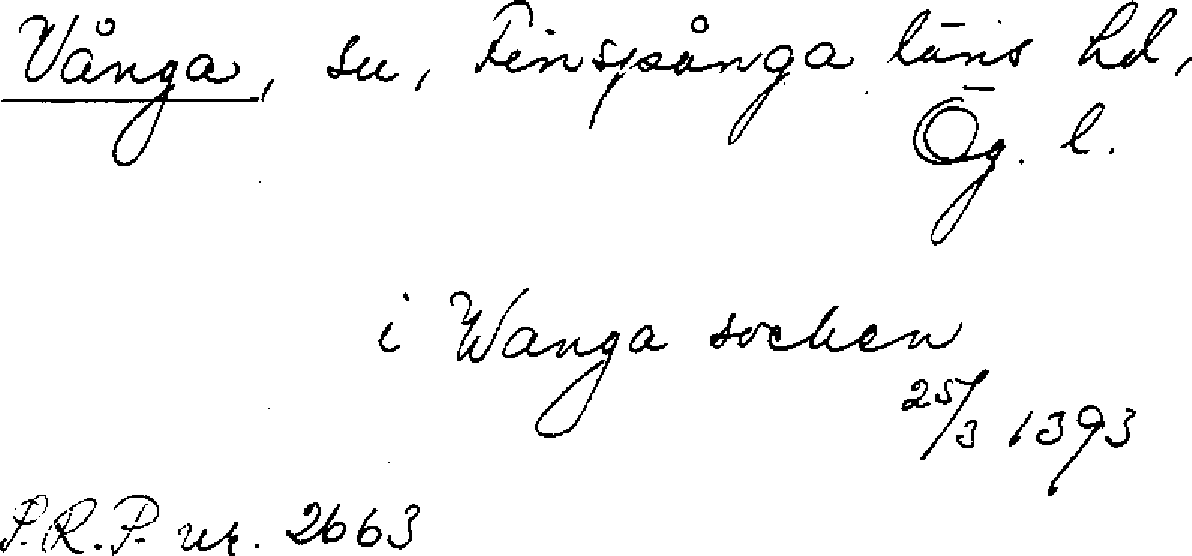 Vånga, sn, Finspånga läns hd,
Ög. l.
i Wanga sochen
25/3 1393
P.R.P. nr. 2663